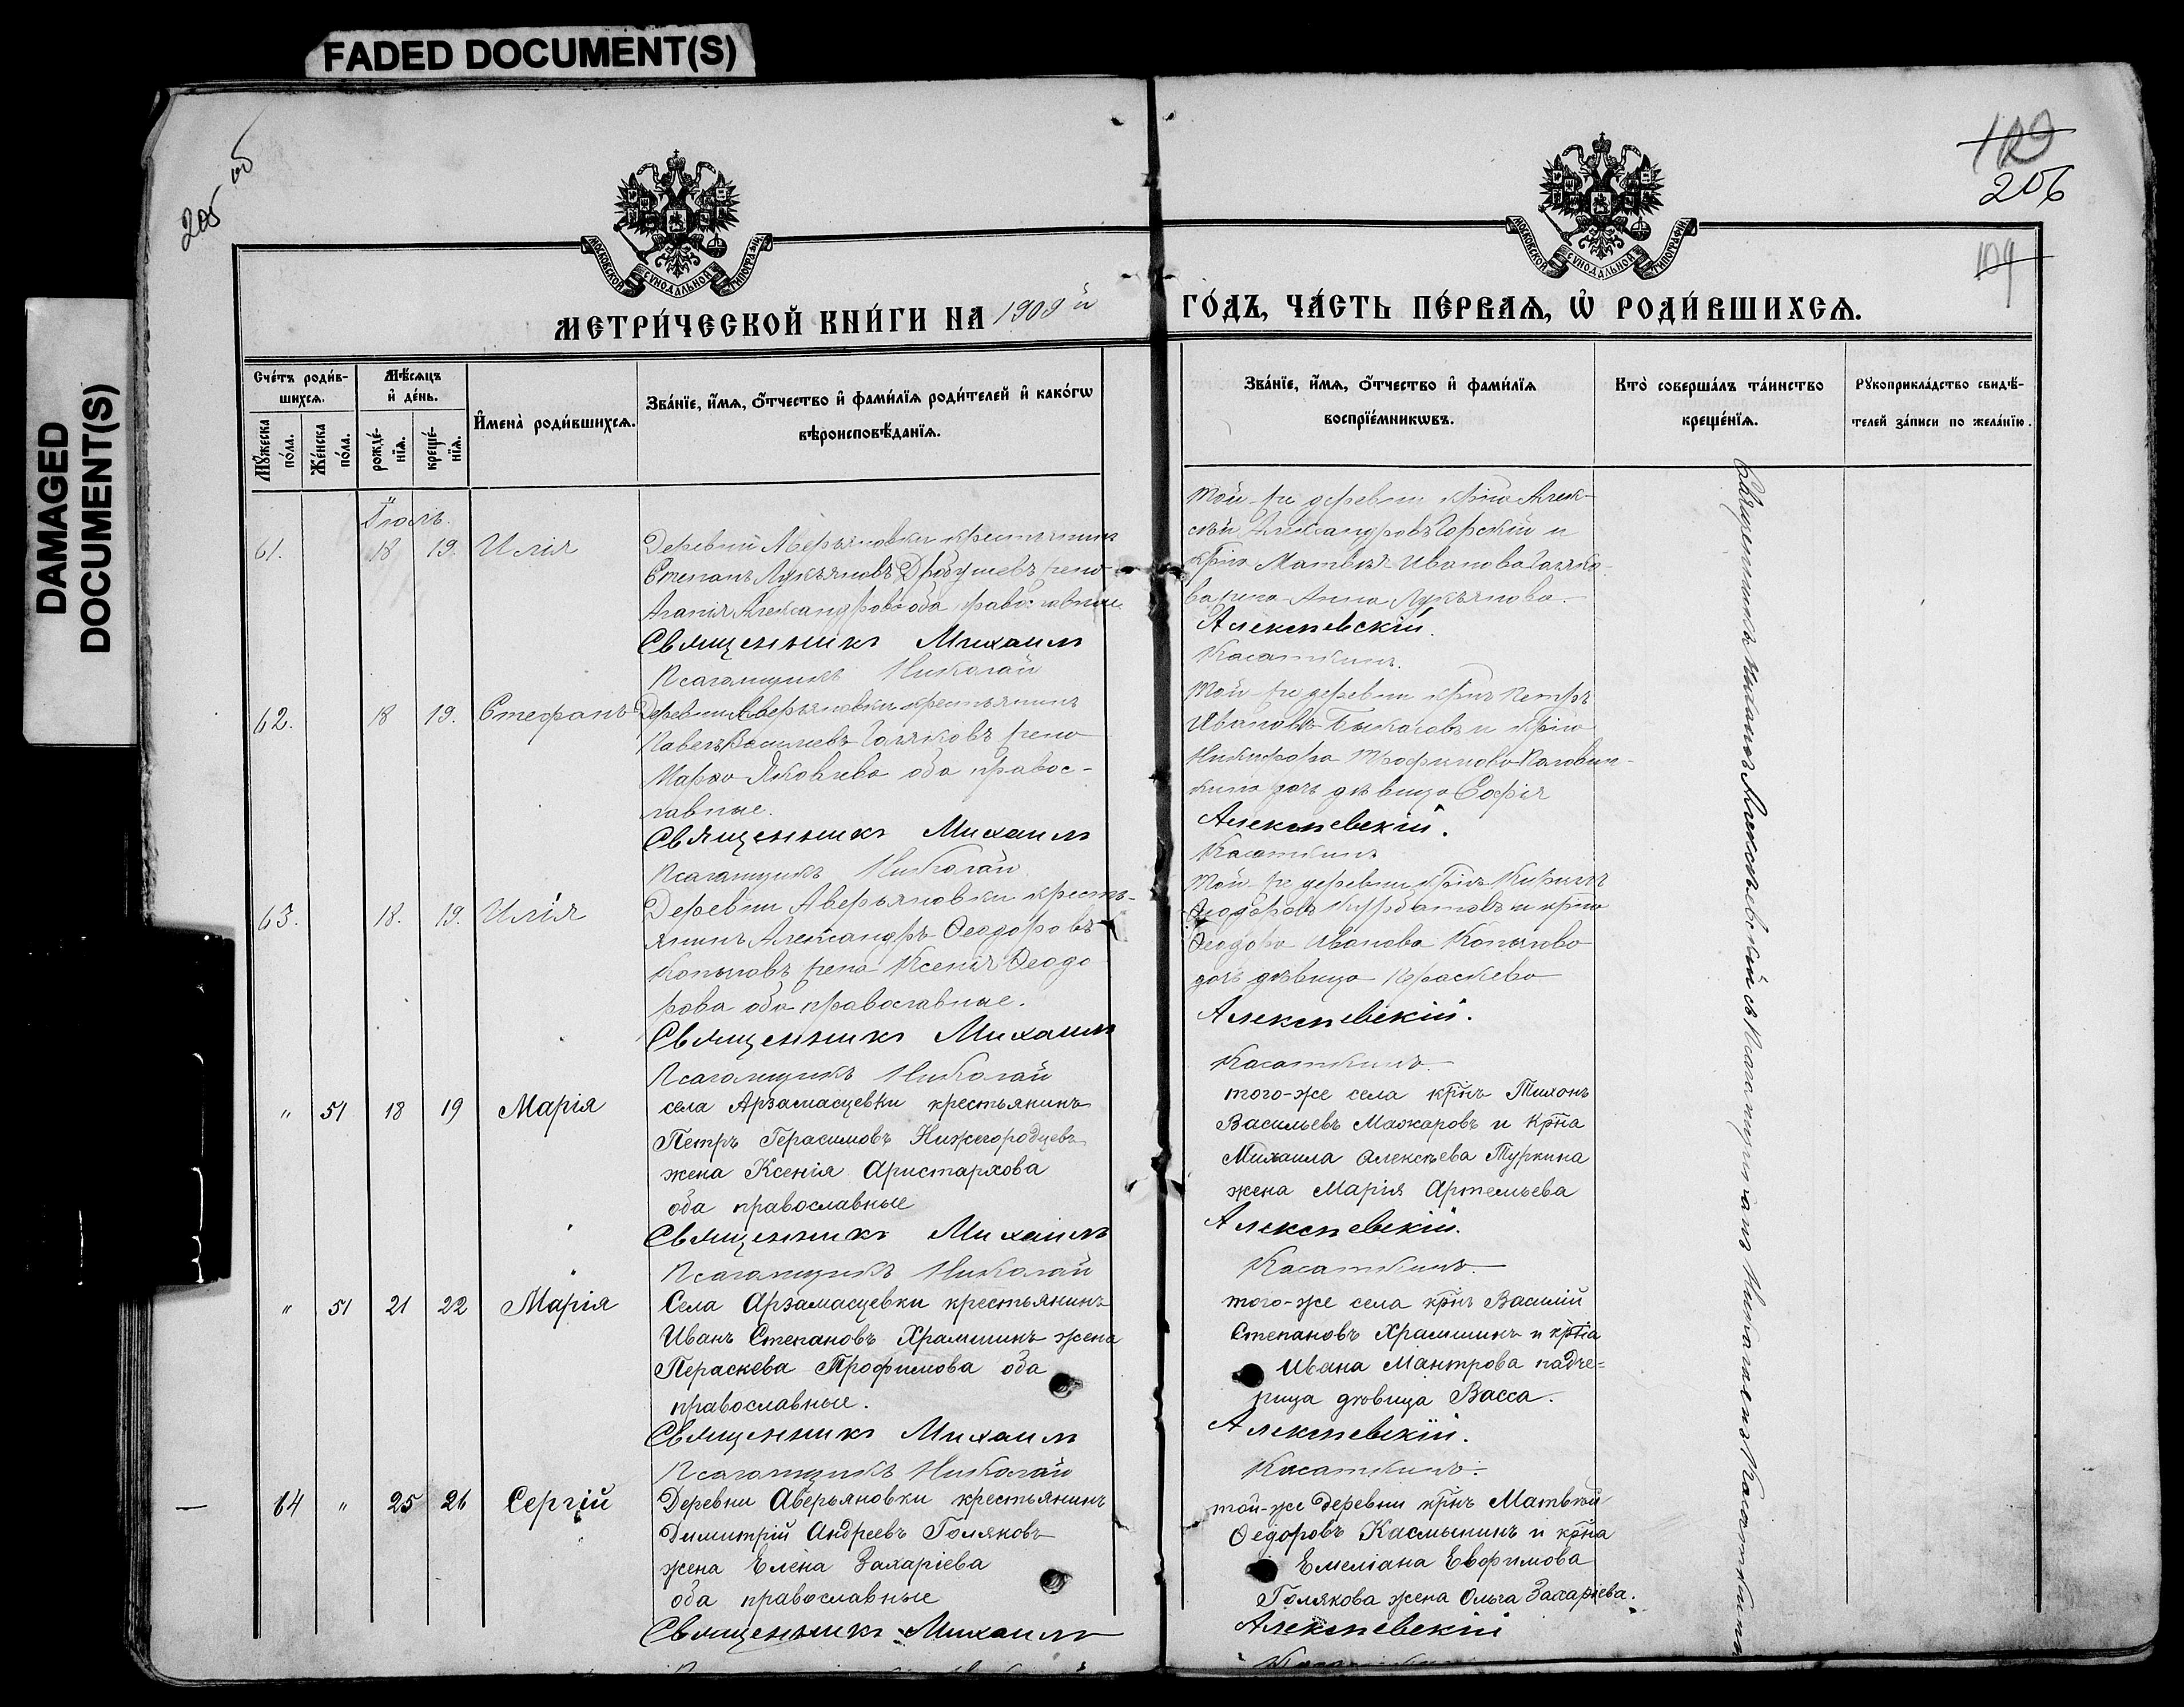 FADED DOCUMENT(S)
DAMAGED
DOCUMENT(S)
205 об
129
206
104
МОСКОВСКОЙ СѴНОДАЛЬНОЙ ТИПОГРАФІИ
МОСКОВСКОЙ СѴНОДАЛЬНОЙ ТИПОГРАФІИ
МЕТРИ́ЧЕСКОЙ КНИ́ГИ НА 1909й
ГО́ДЪ, ЧА́СТЬ ПЕ́РВАѦ, Ѡ҆ РОДИ́ВШИХСѦ.
Сче́тъ роди́в-
шихсѧ.
Мѣ́сѧцъ
и҆ де́нь.
Мꙋ́жеска
по́ла.
Же́нска
по́ла.
рожде́-
нїѧ.
креще́-
нїѧ.
И҆мена̀ роди́вшихсѧ.
Зва́нїе, и҆́мѧ, ѻ҆́тчество и҆ фами́лїѧ роди́телей и҆ како́гѡ
вѣроисповѣ́данїѧ.
Зва́нїе, и҆́мѧ, ѻ҆́тчество и҆ фами́лїѧ
воспрїе́мникѡвъ.
Кто̀ соверша́лъ та́инство
креще́нїѧ.
Рꙋкоприкла́дство свидѣ́-
телей за́писи по жела́нїю.
Іюль.
61. 18 19. Илія
Деревни Аверьяновки крестьянинъ
Степанъ Лукьяновъ жена
Агапія Александрова оба православные
Священникъ Михаилъ
Псаломщикъ Николай
Той-же деревни крнъ Алек-
сѣй Александровъ Горскій и
крна Матвѣя Иванова Голяко-
ва жена Анна Лукьянова.
Алексѣевскій.
Касаткинъ.
62. 18 19. Стефанъ
Деревни Аверьяновки крестьянинъ
Павелъ Васильевъ Голяковъ жена
Марѳа Яковлева оба правос-
лавные.
Священникъ Михаилъ
Псаломщикъ Николай
Той-же деревни крнъ Петръ
Ивановъ и крна
Никифора Трофимова
дочь дѣвица Софія
Алексѣевскій.
Касаткинъ
63. 18. 19. Илія
Деревни Аверьяновки кресть-
янинъ Александръ Ѳеодоровъ
Копыловъ жена Ксенія Ѳеодо
рова оба православные.
Священникъ Михаилъ
Псаломщикъ Николай
Той-же деревни крнъ Кириллъ
Ѳеодоровъ Курбатовъ и крна
Ѳеодора Иванова Копылова
дочь дѣвица Параскева
Алексѣевскій.
Касаткинъ.
" 51 18 19 Марія
села Арзамасцевки крестьянинъ
Петръ Герасимовъ Нижегородцевъ
жена Ксенія Аристархова
оба православные
Священникъ Михаилъ
Псаломщикъ Николай
того-же села крнъ Тихонъ
Васильевъ Мажаровъ и крна
Михаила Алексѣева Туркина
жена Марія Артемьева
Алексѣевскій.
Касаткинъ.
" 51 21 22 Марія
Села Арзамасцевки крестьянинъ
Иванъ Степановъ Храмшинъ жена
Пераскева Трофимова оба
православные.
Священникъ Михаилъ
Псаломщикъ Николай
того-же села крнъ Василій
Степановъ Храмшинъ и крна
Ивана Мантрова падче=
рица дѣвица Васса.
Алексѣевскій.
Касаткинъ.
64 " 25 26 Сергій
Деревни Аверьяновки крестьянинъ
Димитрій Андреевъ Голяковъ
жена Елена Захаріева
оба православные
Священникъ Михаилъ
той-же деревни крнъ Матвѣй
Ѳедоровъ Касмынинъ и крна
Емеліана Евфимова
Голякова жена Ольга Захаріева.
Алексѣевскій
Священникъ Михаилъ Алексѣевскій съ Псаломщикомъ Николаемъ Касаткинымъ